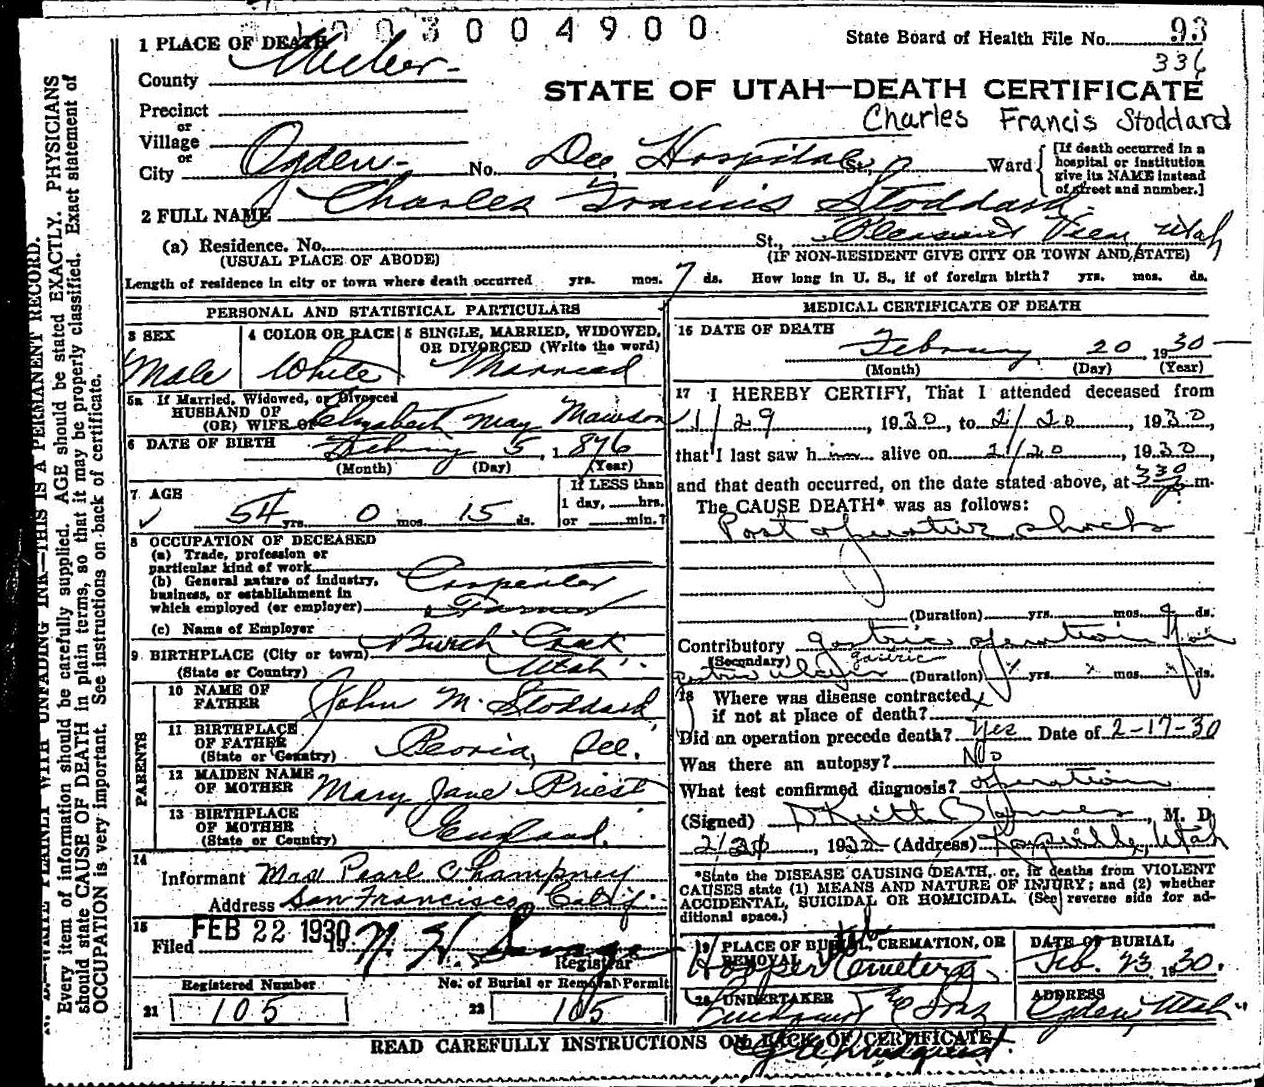 003004900
State Board of Health File No. 93
336
1 PLACE OF DEATH
County Weber
STATE OF UTAH—DEATH CERTIFICATE
Charles Francis Stoddard
Precinct
or
Village
or
City Ogden No. Dee Hospital St., Ward
[If death occurred in a hospital or institution give its NAME instead of street and number.]
2 FULL NAME Charles Francis Stoddard
(a) Residence. No. St., Pleasant View, Utah
(USUAL PLACE OF ABODE) (IF NON-RESIDENT GIVE CITY OR TOWN AND STATE)
Length of residence in city or town where death occurred yrs. mos. 7 ds. How long in U. S., if of foreign birth? yrs. mos. ds.
PERSONAL AND STATISTICAL PARTICULARS
3 SEX
Male
4 COLOR OR RACE
White
5 SINGLE, MARRIED, WIDOWED, OR DIVORCED (Write the word)
Married
5a If Married, Widowed, or Divorced
HUSBAND OF
(OR) WIFE OF Elizabeth May Mawson
6 DATE OF BIRTH February 5, 1876
(Month) (Day) (Year)
7 AGE
54 yrs. 0 mos. 15 ds.
If LESS than
1 day, hrs.
or min.?
8 OCCUPATION OF DECEASED
(a) Trade, profession or
particular kind of work Carpenter
(b) General nature of industry,
business, or establishment in
which employed (or employer) Farmer
(c) Name of Employer
9 BIRTHPLACE (City or town) Burch Creek
(State or Country) Utah
PARENTS
10 NAME OF FATHER John M. Stoddard
11 BIRTHPLACE OF FATHER (State or Country) Peoria, Ill.
12 MAIDEN NAME OF MOTHER Mary Jane Priest
13 BIRTHPLACE OF MOTHER (State or Country) England.
14
Informant Mrs Pearl Champney
Address San Francisco, Calif.
15
Filed FEB 22 1930 19
Registrar
Registered Number
21 105
No. of Burial or Removal Permit
22 105
MEDICAL CERTIFICATE OF DEATH
16 DATE OF DEATH
February 20 1930
(Month) (Day) (Year)
17 I HEREBY CERTIFY, That I attended deceased from
1/29, 1930, to 2/20, 1930,
that I last saw him alive on 2/20, 1930,
and that death occurred, on the date stated above, at 330 m.
The CAUSE DEATH* was as follows:
Post operative shock
(Duration) yrs. mos. ds.
Contributory gastric operation for
(Secondary) gastric
(Duration) yrs. mos. ds.
18 Where was disease contracted
if not at place of death?
Did an operation precede death? Yes Date of 2-17-30
Was there an autopsy? No
What test confirmed diagnosis? operation
(Signed) D Keith Barnes, M. D.
2/20, 1930 (Address) Kaysville, Utah
*State the DISEASE CAUSING DEATH, or, in deaths from VIOLENT
CAUSES state (1) MEANS AND NATURE OF INJURY; and (2) whether
ACCIDENTAL, SUICIDAL OR HOMICIDAL. (See reverse side for ad-
ditional space.)
19 PLACE OF BURIAL, CREMATION, OR REMOVAL
Hooper Cemetery
DATE OF BURIAL
Feb. 23, 1930.
20 UNDERTAKER
ADDRESS
Ogden, Utah
READ CAREFULLY INSTRUCTIONS ON BACK OF CERTIFICATE
WRITE PLAINLY WITH UNFADING INK—THIS IS A PERMANENT RECORD.
Every item of information should be carefully supplied. AGE should be stated EXACTLY. PHYSICIANS
should state CAUSE OF DEATH in plain terms, so that it may be properly classified. Exact statement of
OCCUPATION is very important. See instructions on back of certificate.